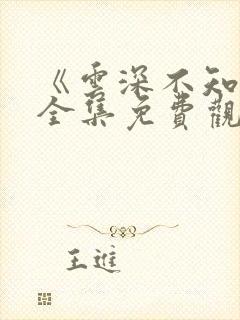 《雲深不知
全集免費觀
王進